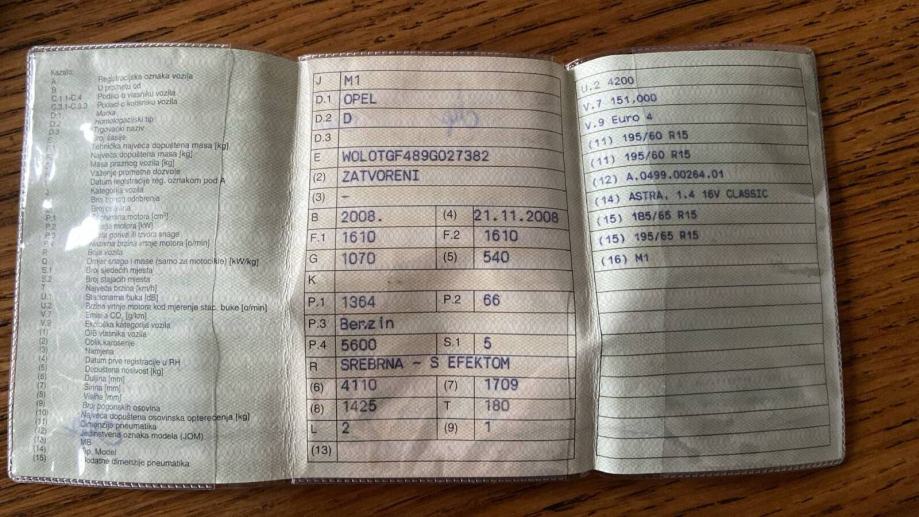 Kazalo:
A Registracijska oznaka vozila
B U prometu od
C.1.1-C.4 Podaci o vlasniku vozila
C.3.1-C.3.3 Podaci o korisniku vozila
D.1 Marka
D.2 Homologacijski tip
D.3 Trgovački naziv
Broj šasije
Tehnička najveća dopuštena masa [kg]
Najveća dopuštena masa [kg]
Masa praznog vozila [kg]
Važenje prometne dozvole
Datum registracije reg. oznakom pod A
Kategorija vozila
motora [cm³]
motora [kW]
goriva ili izvora snage
brzina vrtnje motora [o/min]
R Boja vozila
Q Omjer snage i mase (samo za motocikle) [kW/kg]
S.1 Broj sjedećih mjesta
S.2 Broj stajaćih mjesta
T Najveća brzina [km/h]
U.1 Stacionarna buka [dB]
U.2 Brzina vrtnje motora kod mjerenje stac. buke [o/min]
V.7 Emisija CO₂ [g/km]
V.9 Ekološka kategorija vozila
(1) OIB vlasnika vozila
(2) Oblik karoserije
(3) Namjena
(4) Datum prve registracije u RH
(5) Dopuštena nosivost [kg]
(6) Duljina [mm]
(7) Širina [mm]
(8) Visina [mm]
(9) Broj pogonskih osovina
(10) Najveća dopuštena osovinska opterećenja [kg]
(11) Dimenzije pneumatika
(12) Jedinstvena oznaka modela (JOM)
(13) MB
(14) Tip, Model
(15) Dodatne dimenzije pneumatika
J M1
D.1 OPEL
D.2 D
D.3
E WOLOTGF489G027382
(2) ZATVORENI
(3) -
B 2008. (4) 21.11.2008
F.1 1610 F.2 1610
G 1070 (5) 540
K
P.1 1364 P.2 66
P.3 Benzin
P.4 5600 S.1 5
R SREBRNA - S EFEKTOM
(6) 4110 (7) 1709
(8) 1425 T 180
L 2 (9) 1
(13)
U.2 4200
V.7 151,000
V.9 Euro 4
(11) 195/60 R15
(11) 195/60 R15
(12) A.0499.00264.01
(14) ASTRA, 1.4 16V CLASSIC
(15) 185/65 R15
(15) 195/65 R15
(16) M1